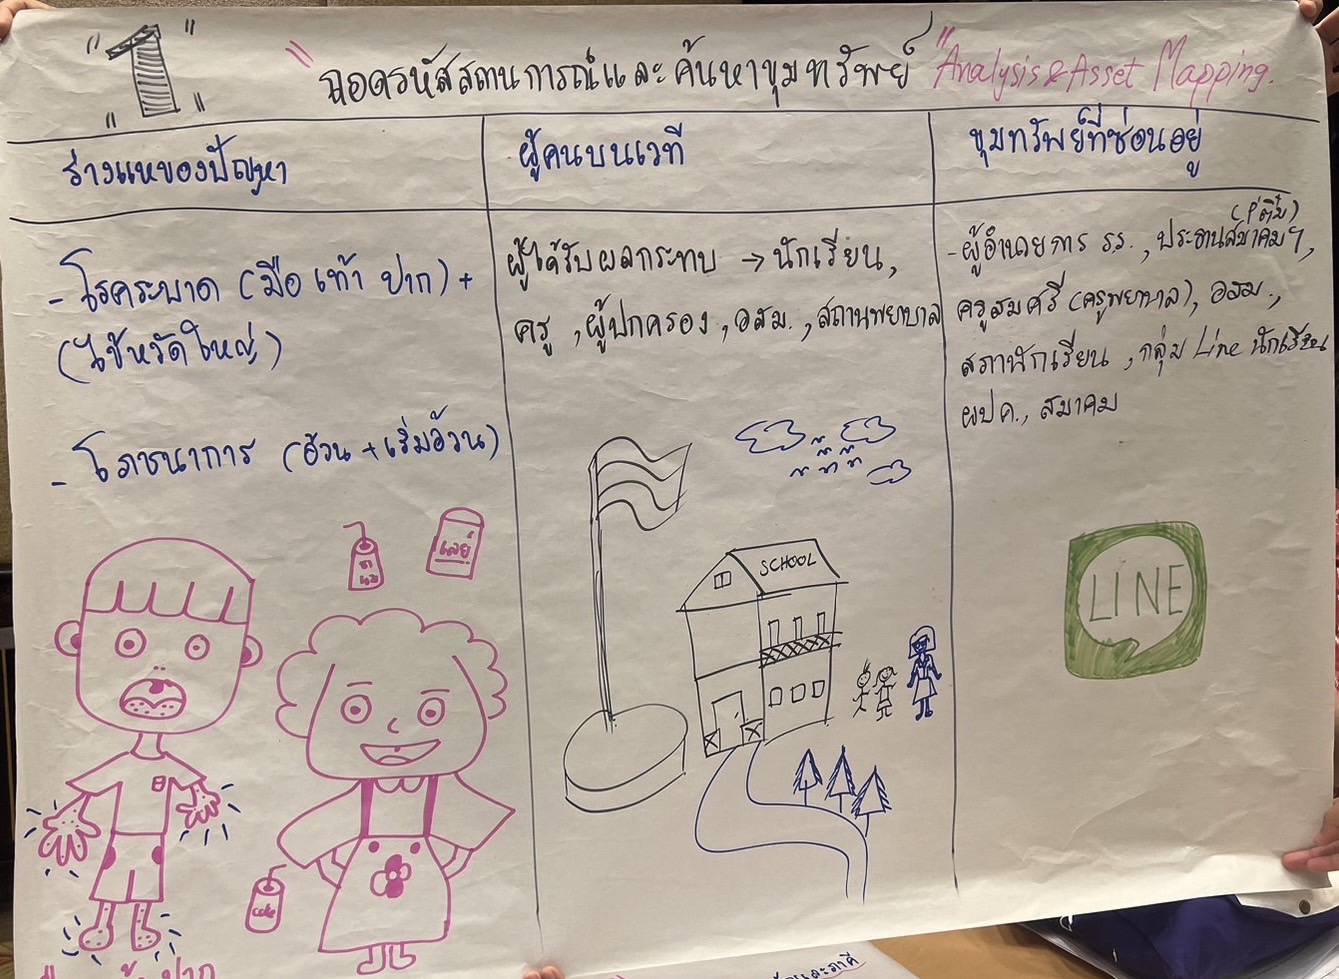 "1"
"ถอดรหัสสถานการณ์และค้นหาขุมทรัพย์" Analysis & Asset Mapping.
ร่างแหของปัญหา
- โรคระบาด (มือ เท้า ปาก) +
(ไข้หวัดใหญ่)
- โภชนาการ (อ้วน + เริ่มอ้วน)
เลย์
coke
ผู้คนบนเวที
ผู้ได้รับผลกระทบ → นักเรียน,
ครู, ผู้ปกครอง, อสม., สถานพยาบาล
SCHOOL
ขุมทรัพย์ที่ซ่อนอยู่
(พี่ติ๋ม)
- ผู้อำนวยการ รร., ประธานสมาคมฯ,
ครูสมศรี (ครูพยาบาล), อสม.,
สภานักเรียน, กลุ่ม Line นักเรียน
ผปค., สมาคม
LINE
ปาก
และภาคี